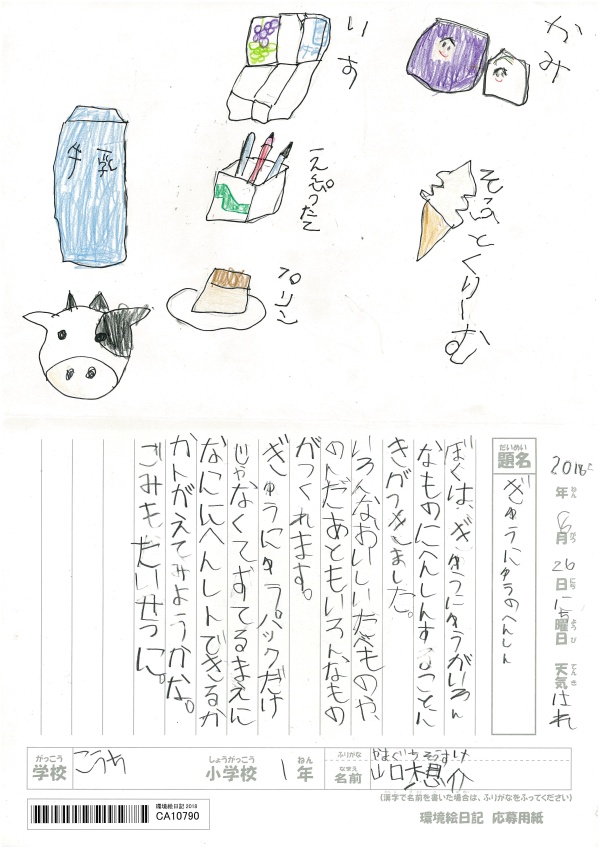 かみ
そふとくりーむ
いす
えんぴつたて
プリン
牛乳
2018
年 ねん
8 月 がつ
26 日 にち
にち 曜日 ようび
天気 てんき はれ
だいめい
題名
ぎゅうにゅうのへんしん
ぼくは、ぎゅうにゅうがいろん
なものにへんしんすることに
きがつきました。
いろんなおいしいたべものや、
のんだあともいろんなもの
がつくれます。
ぎゅうにゅうパックだけ
じゃなくてすてるまえに
なんにへんしんできるか
かんがえてみようかな。
ごみもだいせつに。
がっこう
学校
こうわ
しょうがっこう
小学校
1
ねん
年
ふりがな
なまえ
名前
やまぐちそうすけ
山口想介
(漢字で名前を書いた場合は、ふりがなをふってください)
環境絵日記 2018
CA10790
環境絵日記 応募用紙